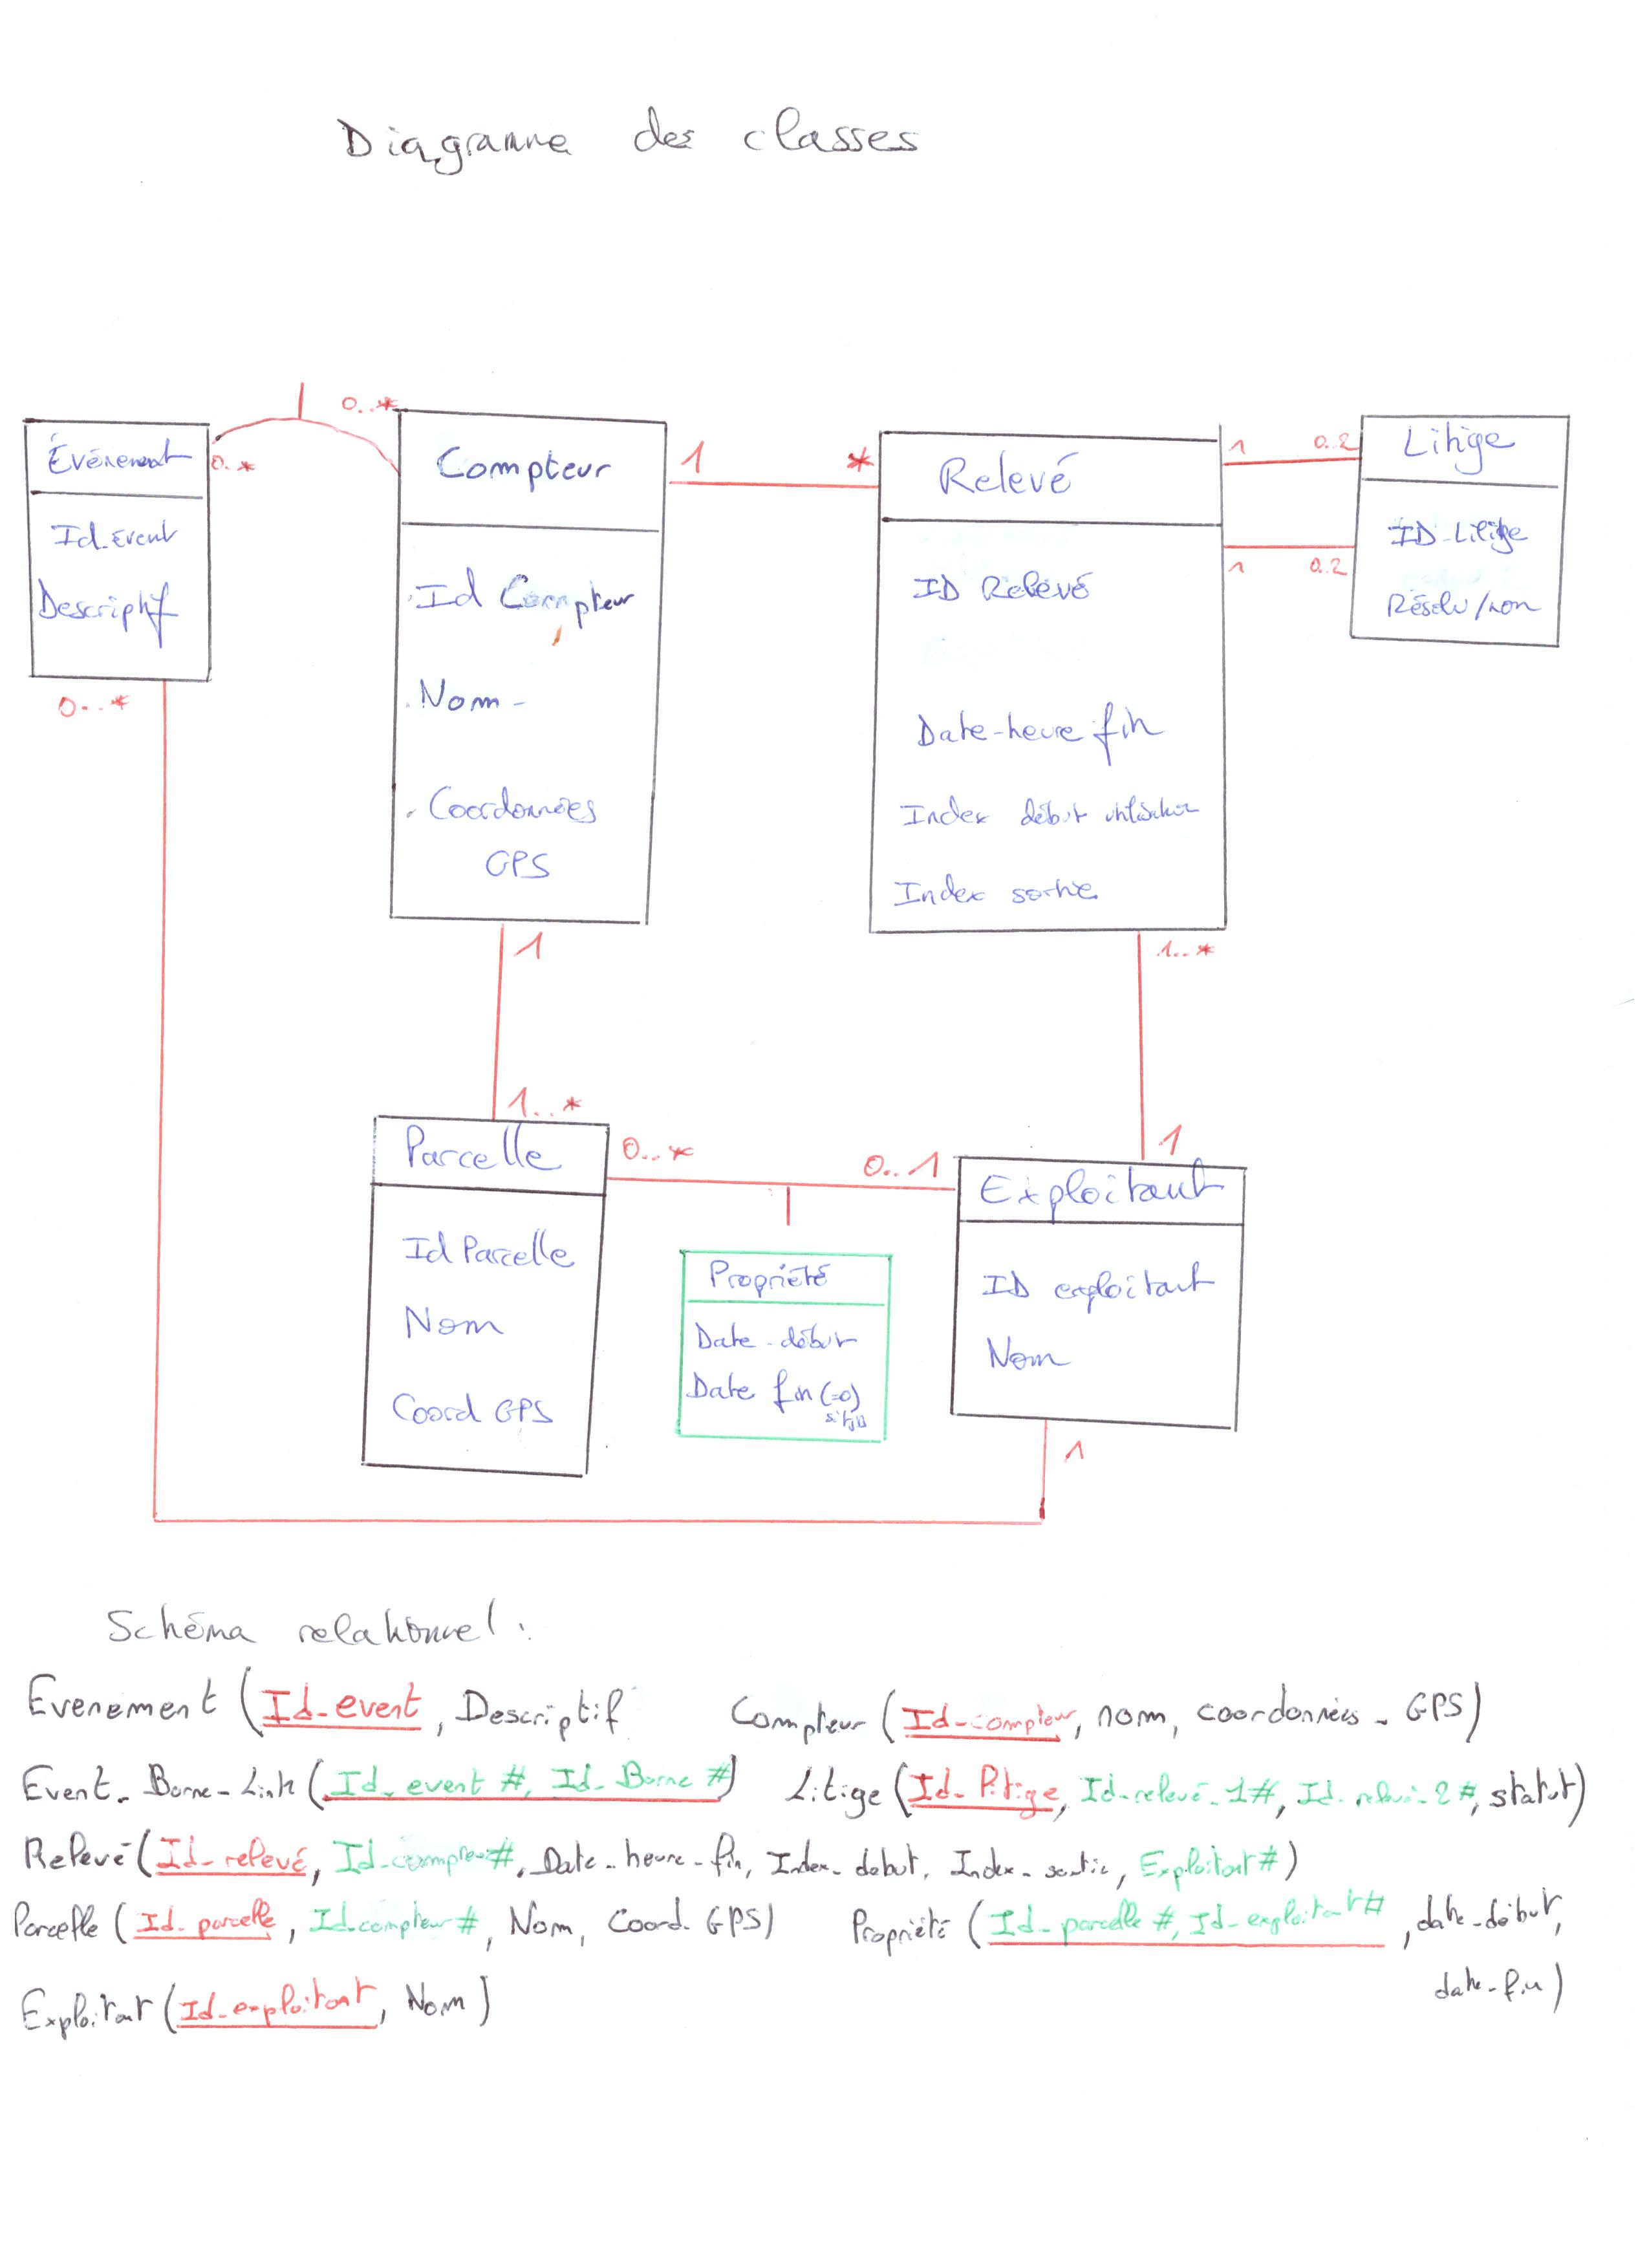 Diagramme des classes
0..*
Événement
0..*
Id_event
Descriptif
0...*
Compteur
Id Compteur
Nom -
Coordonnées
GPS
1
*
Relevé
ID Relevé
Date-heure fin
Index début utilisation
Index sortie
1
0..2
1
0..2
Litige
ID-Litige
Résolu/non
1
1..*
1...*
1
Parcelle
Id Parcelle
Nom
Coord GPS
0...*
0..1
Propriété
Date-début
Date fin (=0)
Exploitant
ID exploitant
Nom
1
Schéma relationnel :
Evenement (Id_event, Descriptif
Compteur (Id-compteur, nom, coordonnées - GPS)
Event_Borne_Link (Id_event #, Id_Borne #)
Litige (Id_litige, Id-relevé_1#, Id_relevé-2#, statut)
Relevé (Id_relevé, Id-compteur#, Date_heure_fin, Index_debut, Index_sortie, Exploitant#)
Parcelle (Id_parcelle, Id compteur #, Nom, Coord. GPS)
Propriété (Id_parcelle #, Id_exploitant#, date-début,
date-fin)
Exploitant (Id_exploitant, Nom)